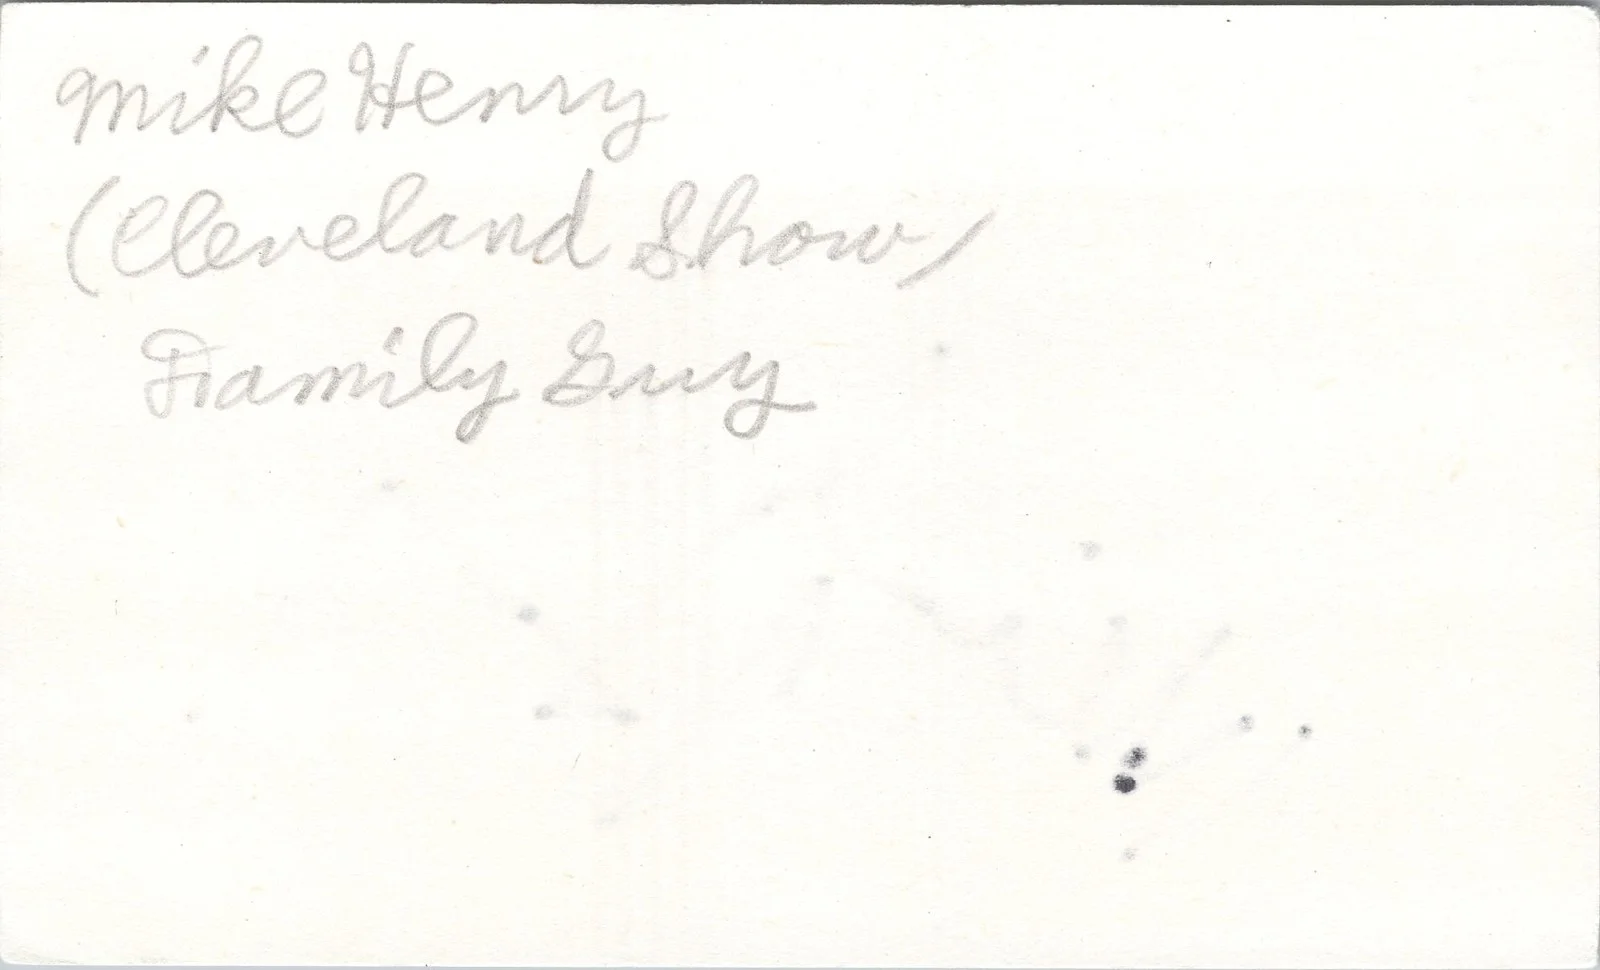 Mike Henry
(Cleveland Show)
Family Guy